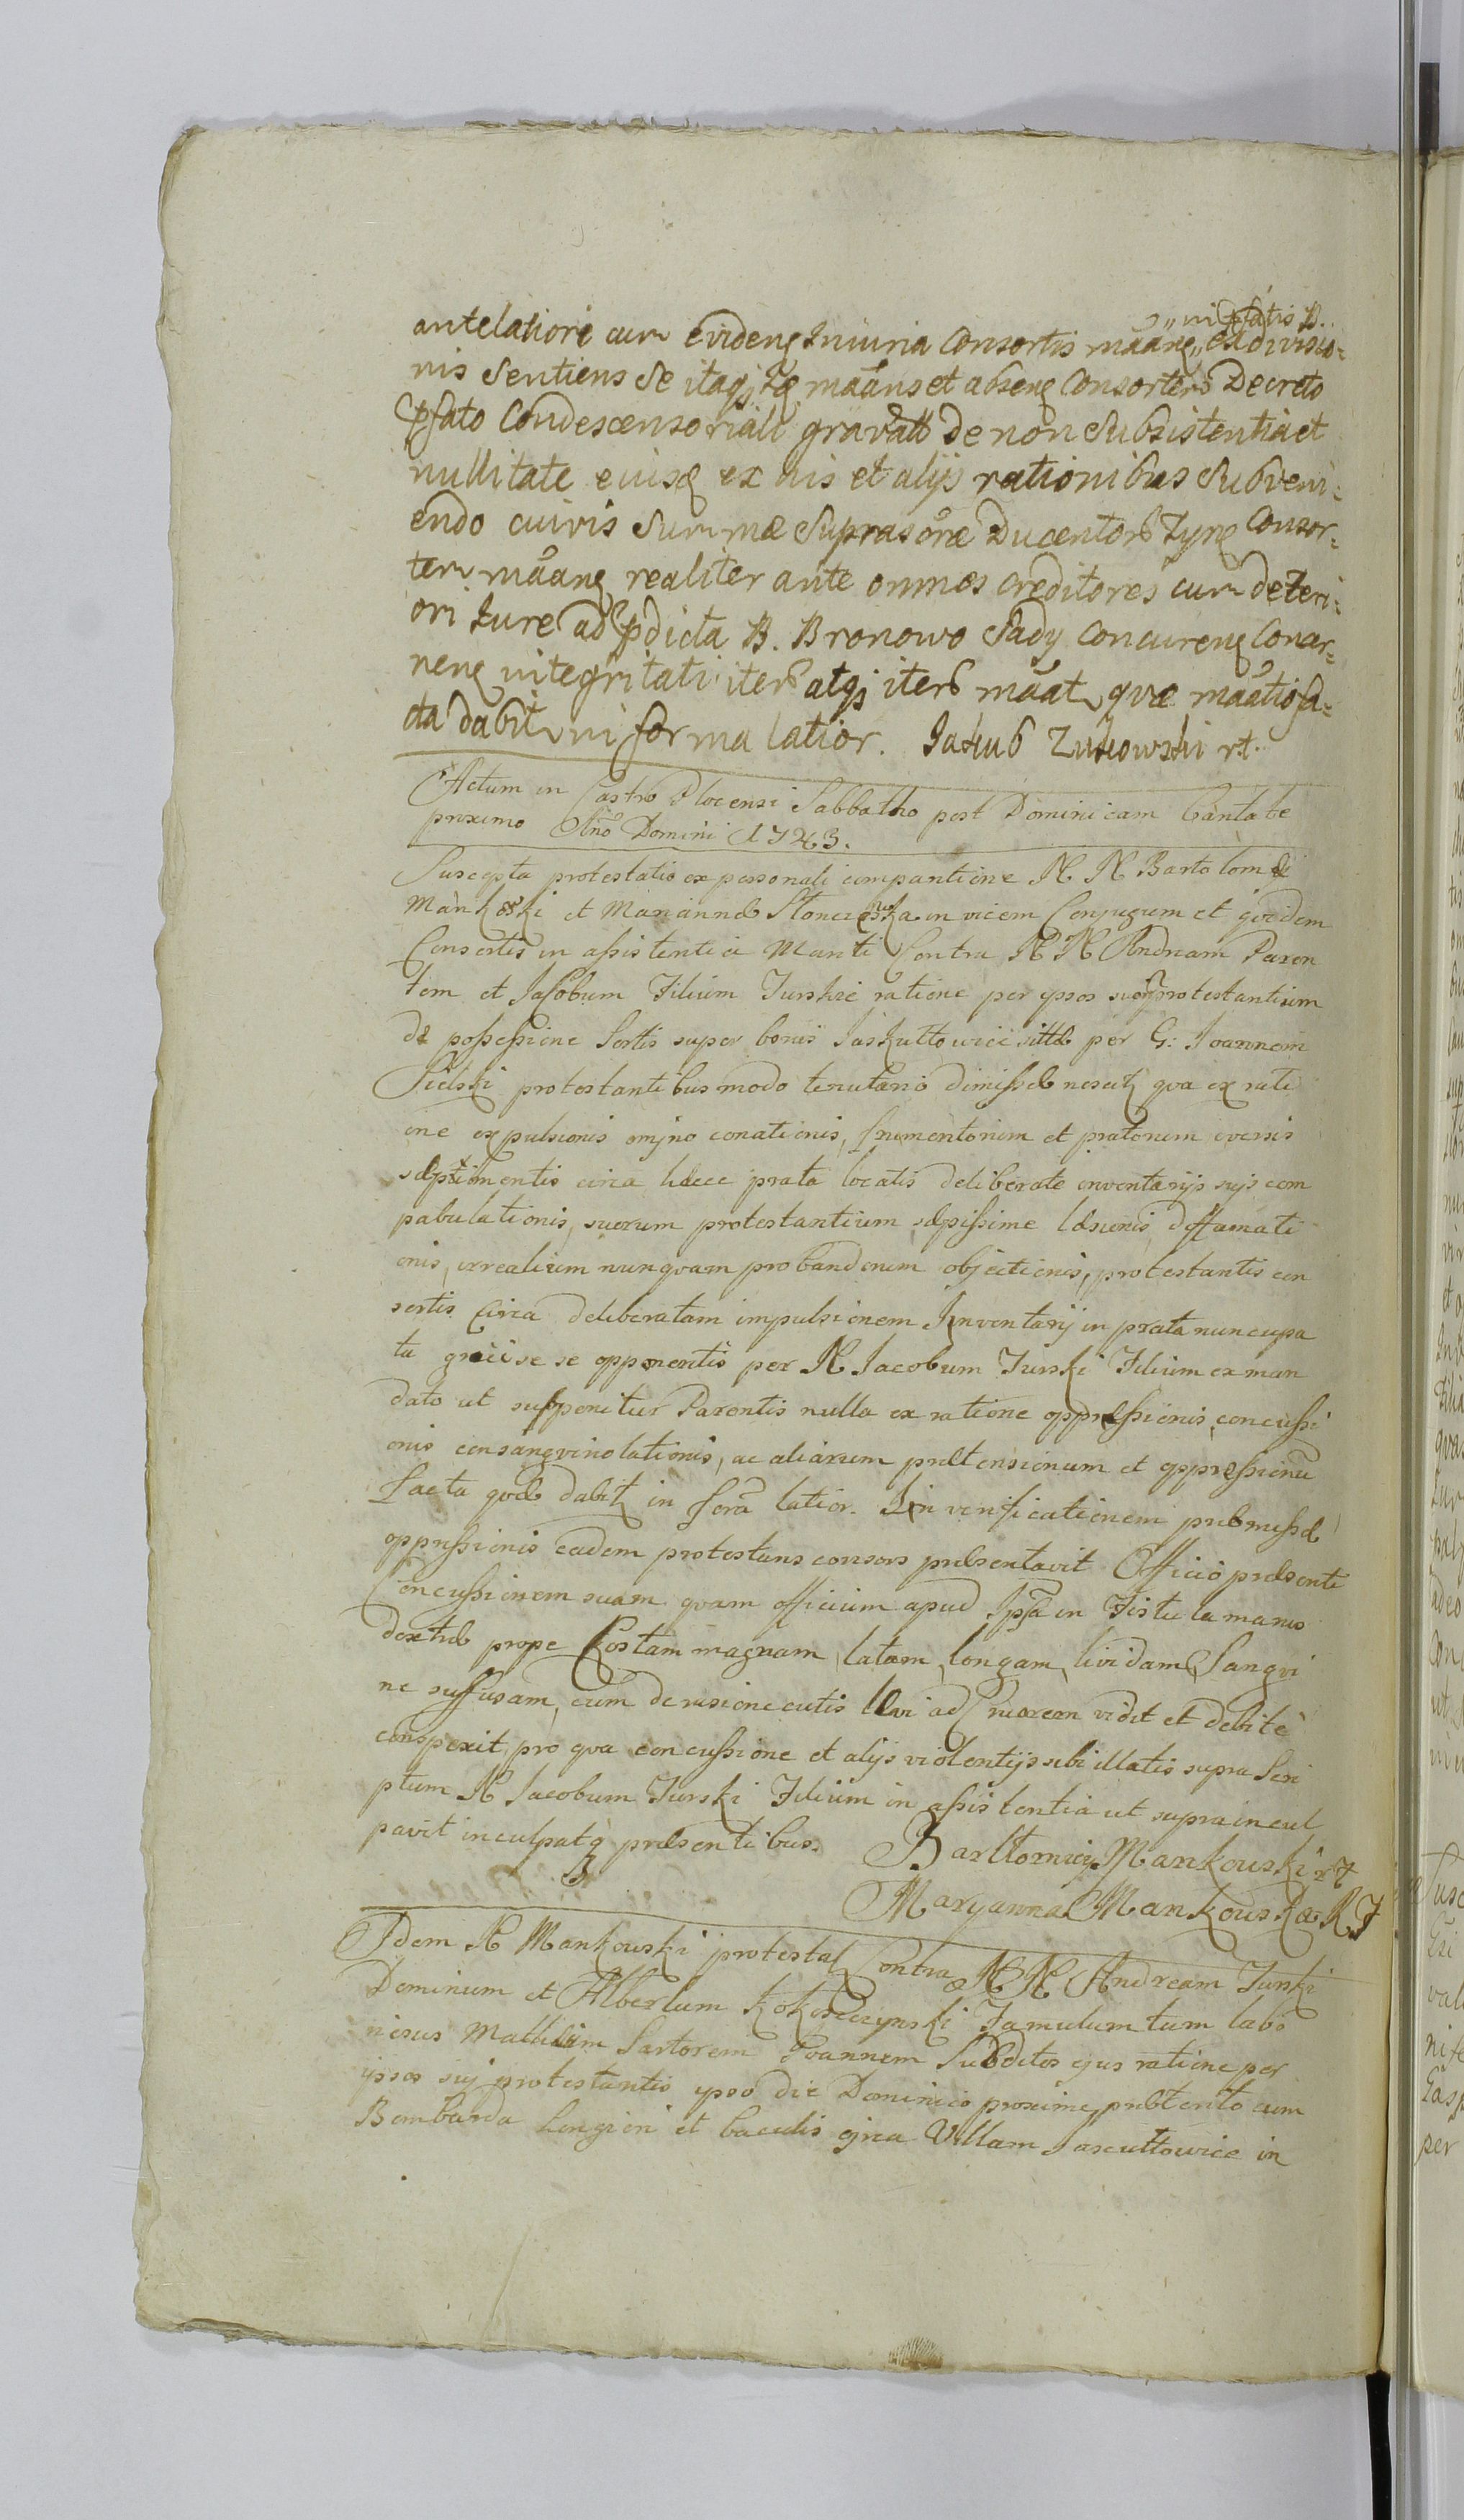 nitatis B.
antelatiori cum evideng Iniuria Consortis mãang„ ex divisio=
nis sentiens se itaqȝ mãans et abseng Consortem Decreto
pfato Condescensoriali gravatt de non subsistentia et
nullitate eiusq ex his et alijs rationibus subveni=
endo cuivis summæ suprascræ Ducentor Zyng Consor=
tem mãang realiter ante omnes creditores cum deteri=
ori Iure ad pdicta B. Bronowo Sady concureng Concer=
neng integritati iter atqȝ iter mãat quæ mãatio fa=
cta dabit in forma latior. Jakub Zukowski rt.
Actum in Castro Plocensi Sabbatho post Dominicam Cantate
proximo Anno Domini 1743.
Suscepta protestatio ex personali comparitione N N Bartolomæi
Mankoski et Mariannæ Stonczeska in vicem Conjugum et quidem
Consortis in assistentia Mariti Contra N N Andream Paren
tem et Jacobum Filium Turskie ratione per ypsos suor protestantium
de possessione Sortis super bonis Jaskułtowice sittæ per G: Joannem
Sielski protestantibus modo tenutario dimissæ nescitȝ qua ex rati
one expulsionis omjno conationis, frumentorum et pratorum eversis
sæptimentis circa hæcce prata locatis deliberate inventarijs sujs com
pabulationis, suorum protestantium sæpissime læsionis, diffamati
onis, irrealium nunquam probandorum objectionis, protestantis con
sortis circa deliberatam impulsionem Inventarij in prata nuncupa
ta se opponentis per N Jacobum Turski Filium ex man
dato ut supponitur Parentis nulla ex ratione oppressionis, concussi
onis consangvinolationis, ac aliarum prætensionum et oppressionu
facta quæ dabitȝ in forã latior. In verificationem præmissæ
oppressionis eadem protestans consors præsentavit Officio præsenti
Concussionem suam quam officium apud Ipsã in Fistula manus
dextræ prope Costam magnam, latam, longam, lividam Sangvi
ne suffusam, cum derasione cutis ad Cruorem vidit et debite
conspexit, pro qua concussione et alijs violentijs sibi illatis supra Scri
ptum N Jacobum Turski Filium in assistentia ut supra incul
pavit inculpatq præsentibus. Bartłomiey Mankouski rt
Maryanna Mankouska R T
Idem N Mankouski protestatȝ Contra N N Andream Turski
Dominum et Albertum Kokoszczynski Famulum tum labo
riosus Mathiam Sartorem Joannem Subditos ejus ratione per
ypsos suj protestantis ypso die Dominico proxime præterito cum
Bombarda longiori et baculis circa Villam Jascułtowice in